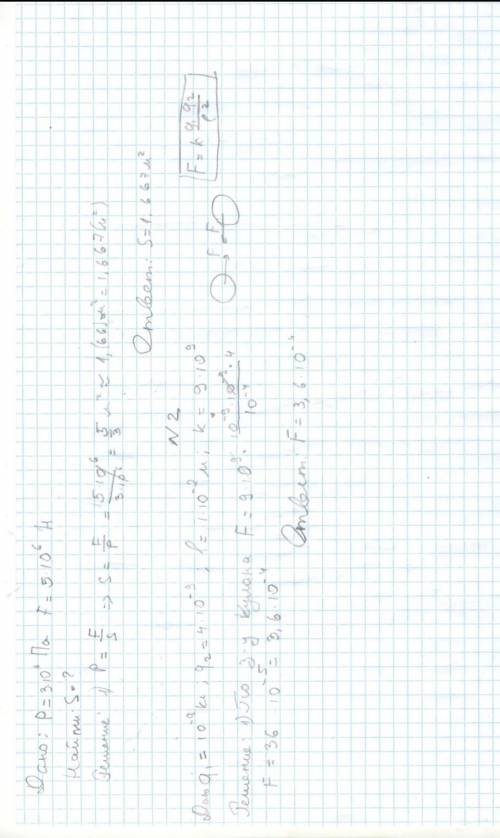 Дано: P = 3·10⁶ Па F = 5·10⁶ Н
Найти: S = ?
Решение: 1) P = F/S => S = F/P = 5·10⁶/3·10⁶ = 5/3 м² ≈ 1,(66) м² = 1,667(м²)
Ответ: S = 1,667 м²
N2
Дано q₁ = 10⁻⁹ Кл; q₂ = 4·10⁻⁹; l = 1·10⁻² м; k = 9·10⁹
F = k q₁q₂/l²
Решение: 1) По з-у Кулона F = 9·10⁹ · 10⁻⁹·10⁻⁹·4/10⁻⁴
F F
F = 36 · 10⁻⁵ = 3,6·10⁻⁴
Ответ: F = 3,6·10⁻⁴